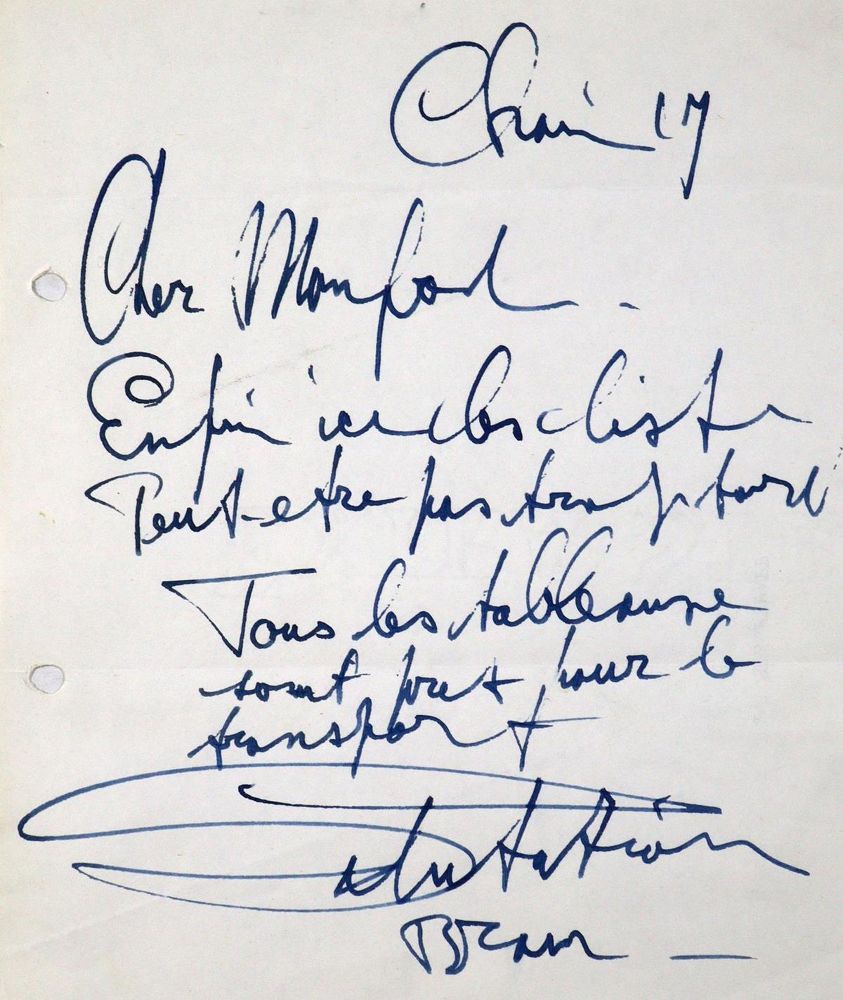 Ohain 17
Cher
Enfin ici les liste
Peut-etre pas trop tard
Tous les tableaux
sont pret pour le
transport
Salutation
Bram —